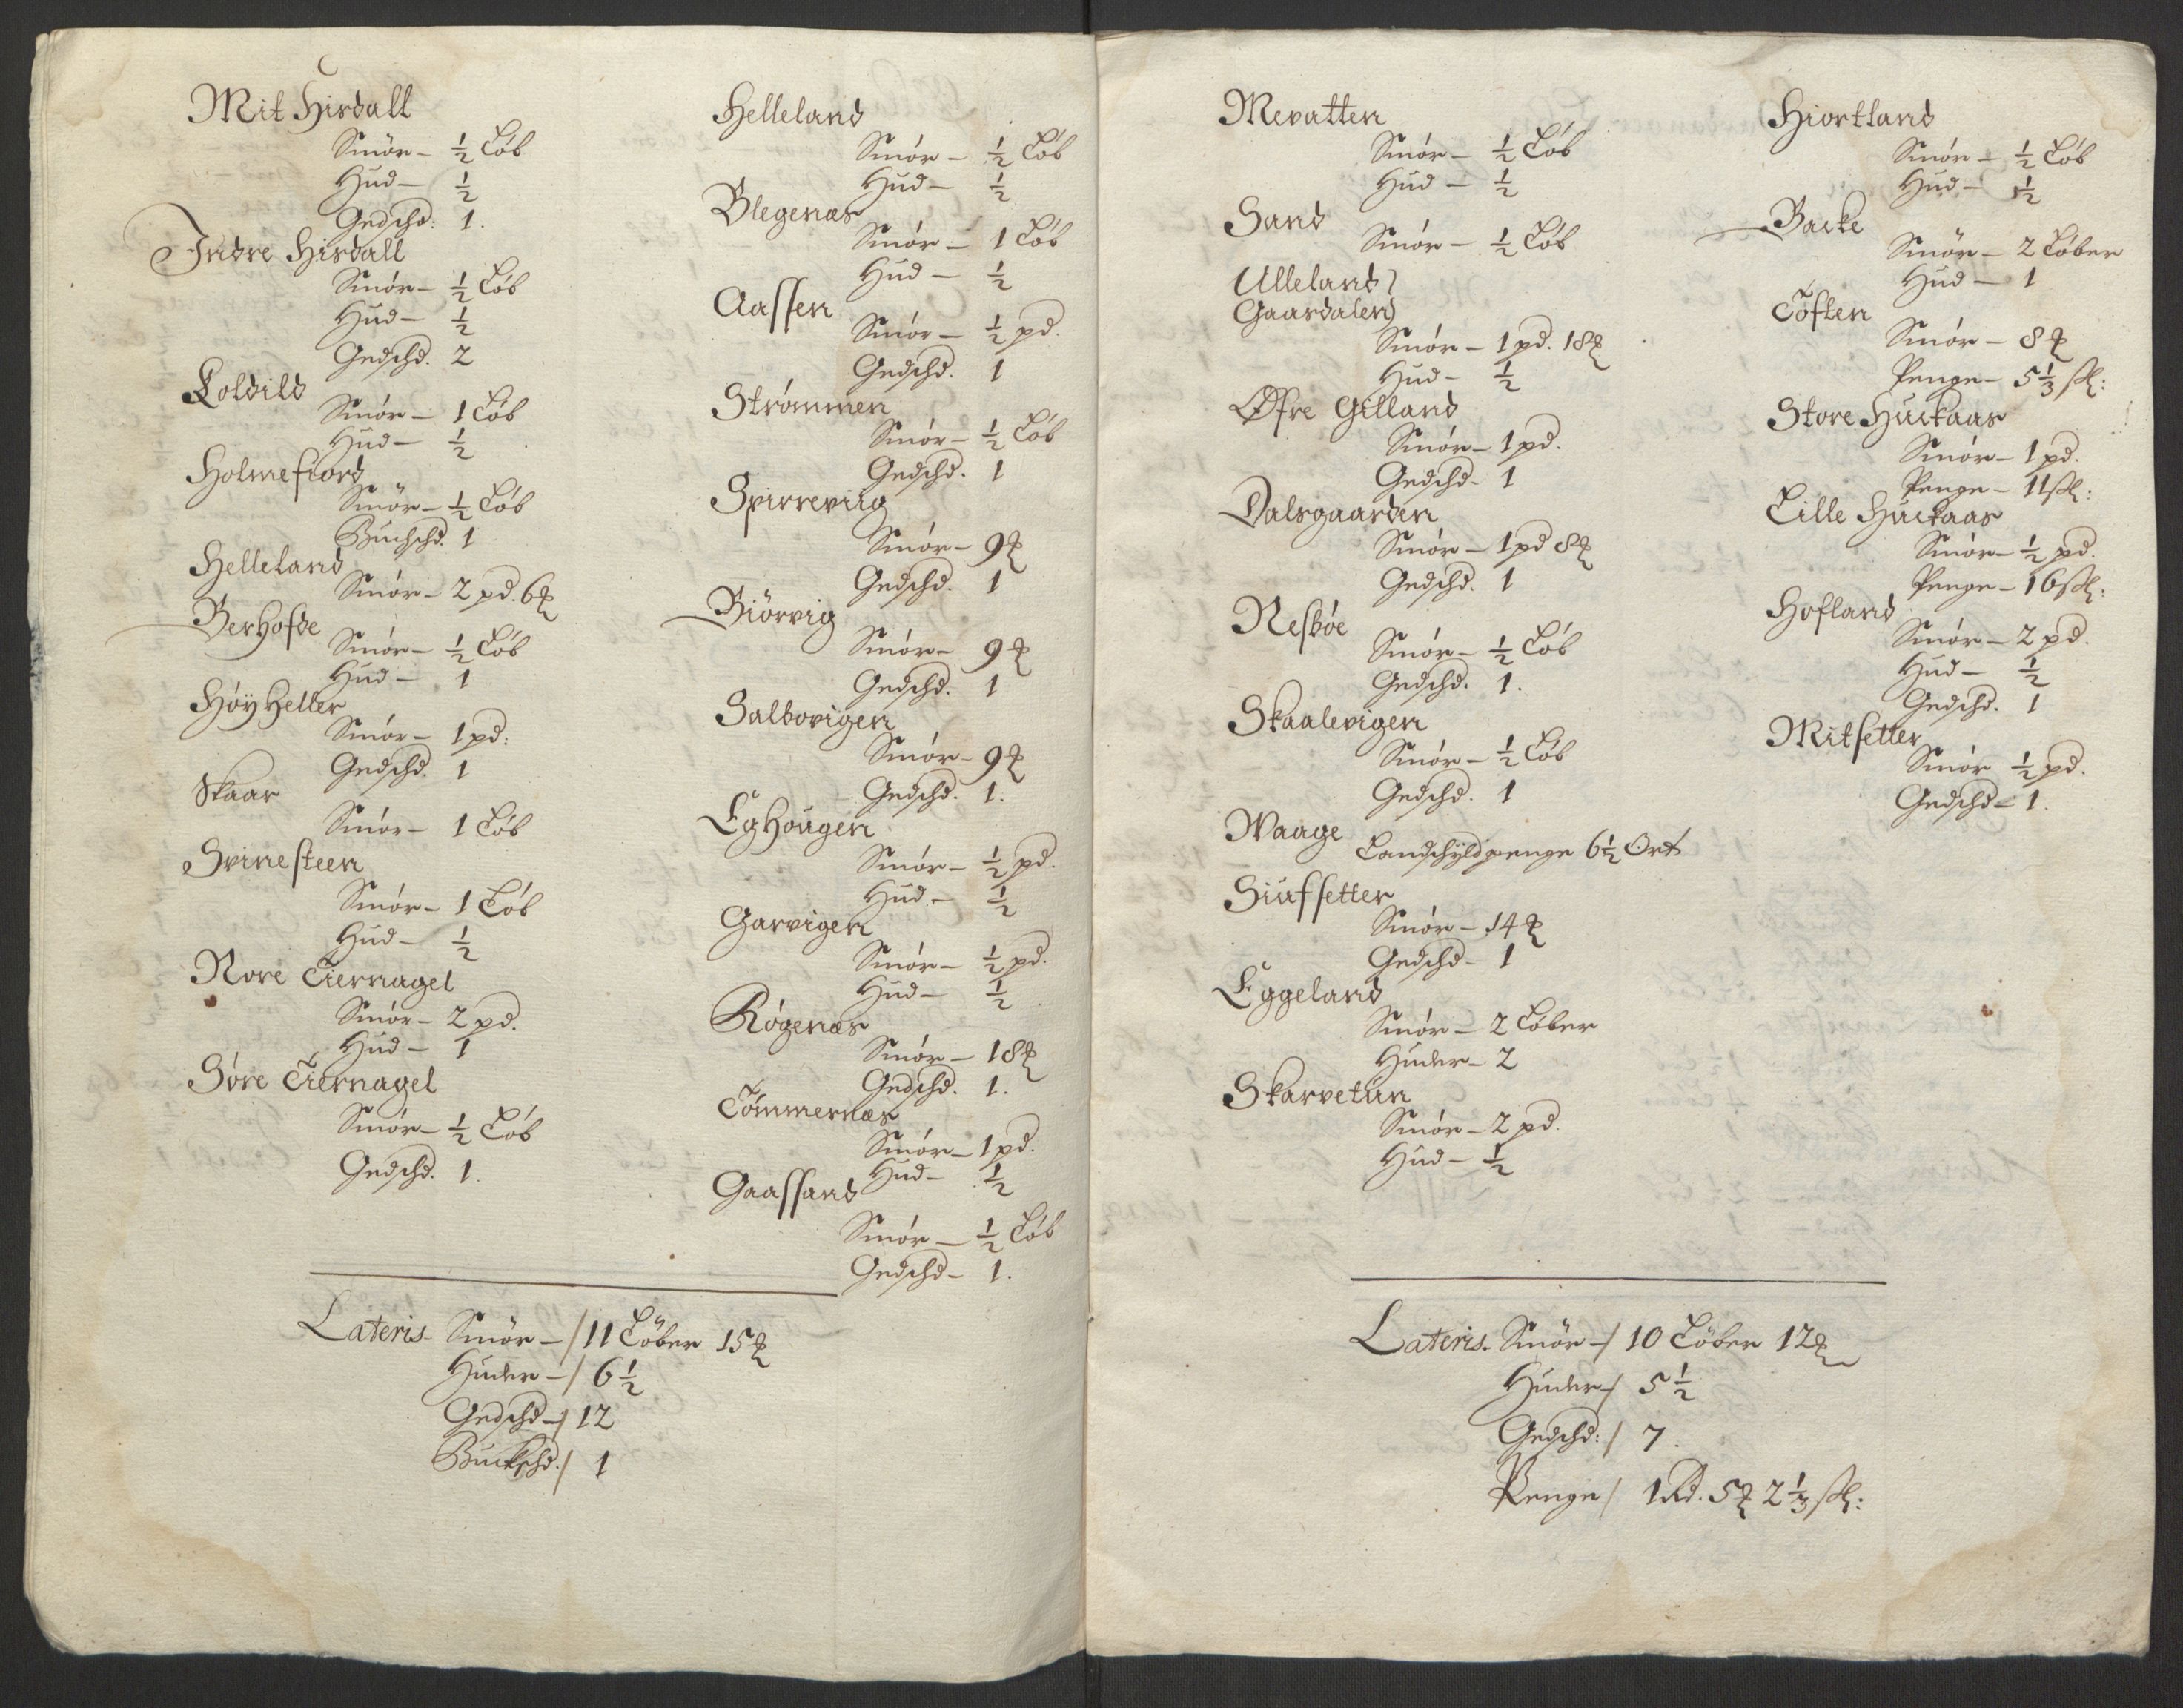 Mit Hisdall
Smör – ½ Löb
Hud – ½
Gedschd: 1.
Indre Hisdall
Smör – ½ Löb
Hud – ½
Gedschd. 2
Loldild
Smör – 1 Löb
Hud – ½
Holmefiord
Smör – ½ Löb
Buchschd. 1
Helleland
Smör – 2 pd. 6 ℔
Berhofde
Smör – ½ Löb
Hud – 1
Höyheller
Smör – 1 pd:
Gedschd. 1
Skaar
Smör – 1 Löb
Svinesteen
Smör – 1 Löb
Hud – ½
Nore Tiernagel
Smör – 2 pd.
Hud – 1
Söre Tiernagel
Smör – ½ Löb
Gedschd. 1.
Helleland
Smör – ½ Löb
Hud – ½
Blegenæs
Smör – 1 Löb
Hud – ½
Aassen
Smör – ½ pd.
Gedschd. 1
Strömmen
Smör – ½ Löb
Gedschd. 1
Spirreviig
Smör – 9 ℔
Gedschd. 1
Biörvig
Smör – 9 ℔
Gedschd. 1
Salbovigen
Smör – 9 ℔
Gedschd. 1.
Eghougen
Smör – ½ pd.
Hud – ½
Garvigen
Smör – ½ pd.
Hud – ½
Rögenæs
Smör – 18 ℔
Gedschd. 1.
Tömmernæs
Smör – 1 pd.
Hud – ½
Gaassand
Smör – ½ Löb
Gedschd – 1.
Lateris Smör – / 11 Löber 15 ℔
Huder – / 6½
Gedschd – / 12
Buckschd. / 1
Mevatten
Smör – ½ Löb
Hud – ½
Sand
Smör – ½ Löb
Ulleland)
Gaardalen)
Smör – 1 pd. 18 ℔
Hud – ½
Øfre Gilland
Smör – 1 pd.
Gedschd – 1
Dalsgaarden
Smör – 1 pd 8 ℔
Gedschd. 1
Nesböe
Smör – ½ Löb
Gedschd. 1.
Skaalevigen
Smör – ½ Löb
Gedschd. 1
Waage
Landschyld penge 6½ Ort
Siufsetter
Smör – 14 ℔
Gedschd – 1
Eggeland
Smör – 2 Löber
Huder – 2
Skarvetun
Smör – 2 pd.
Hud – ½
Hiortland
Smör – ½ Löb
Hud – ½
Backe
Smör – 2 Löber
Hud – 1
Töften
Smör – 8 ℔
Penge – 5⅓ ſk:
Store Huckaas
Smör – 1 pd.
Penge – 11 ſk:
Lille Huckaas
Smör – ½ pd.
Penge – 16 ſk:
Hofland
Smör – 2 pd.
Hud – ½
Gedschd. 1
Mitsetter
Smör ½ pd.
Gedschd – 1.
Lateris. Smör – / 10 Löber 12 ℔
Huder – / 5½
Gedschd: / 7.
Penge / 1 Rd. 5 ℔ 2⅓ ſk: